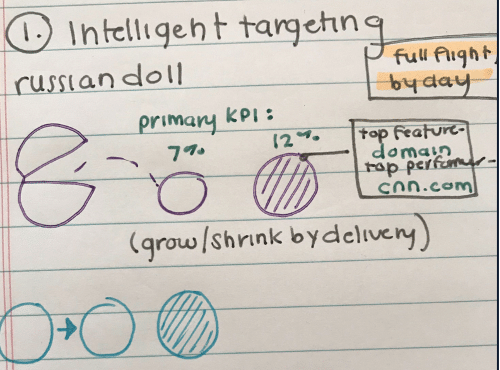 1. Intelligent targeting
russian doll
full flight
by day
primary KPI:
7%
12%
top feature-
domain
top performer-
cnn.com
(grow/shrink by delivery)